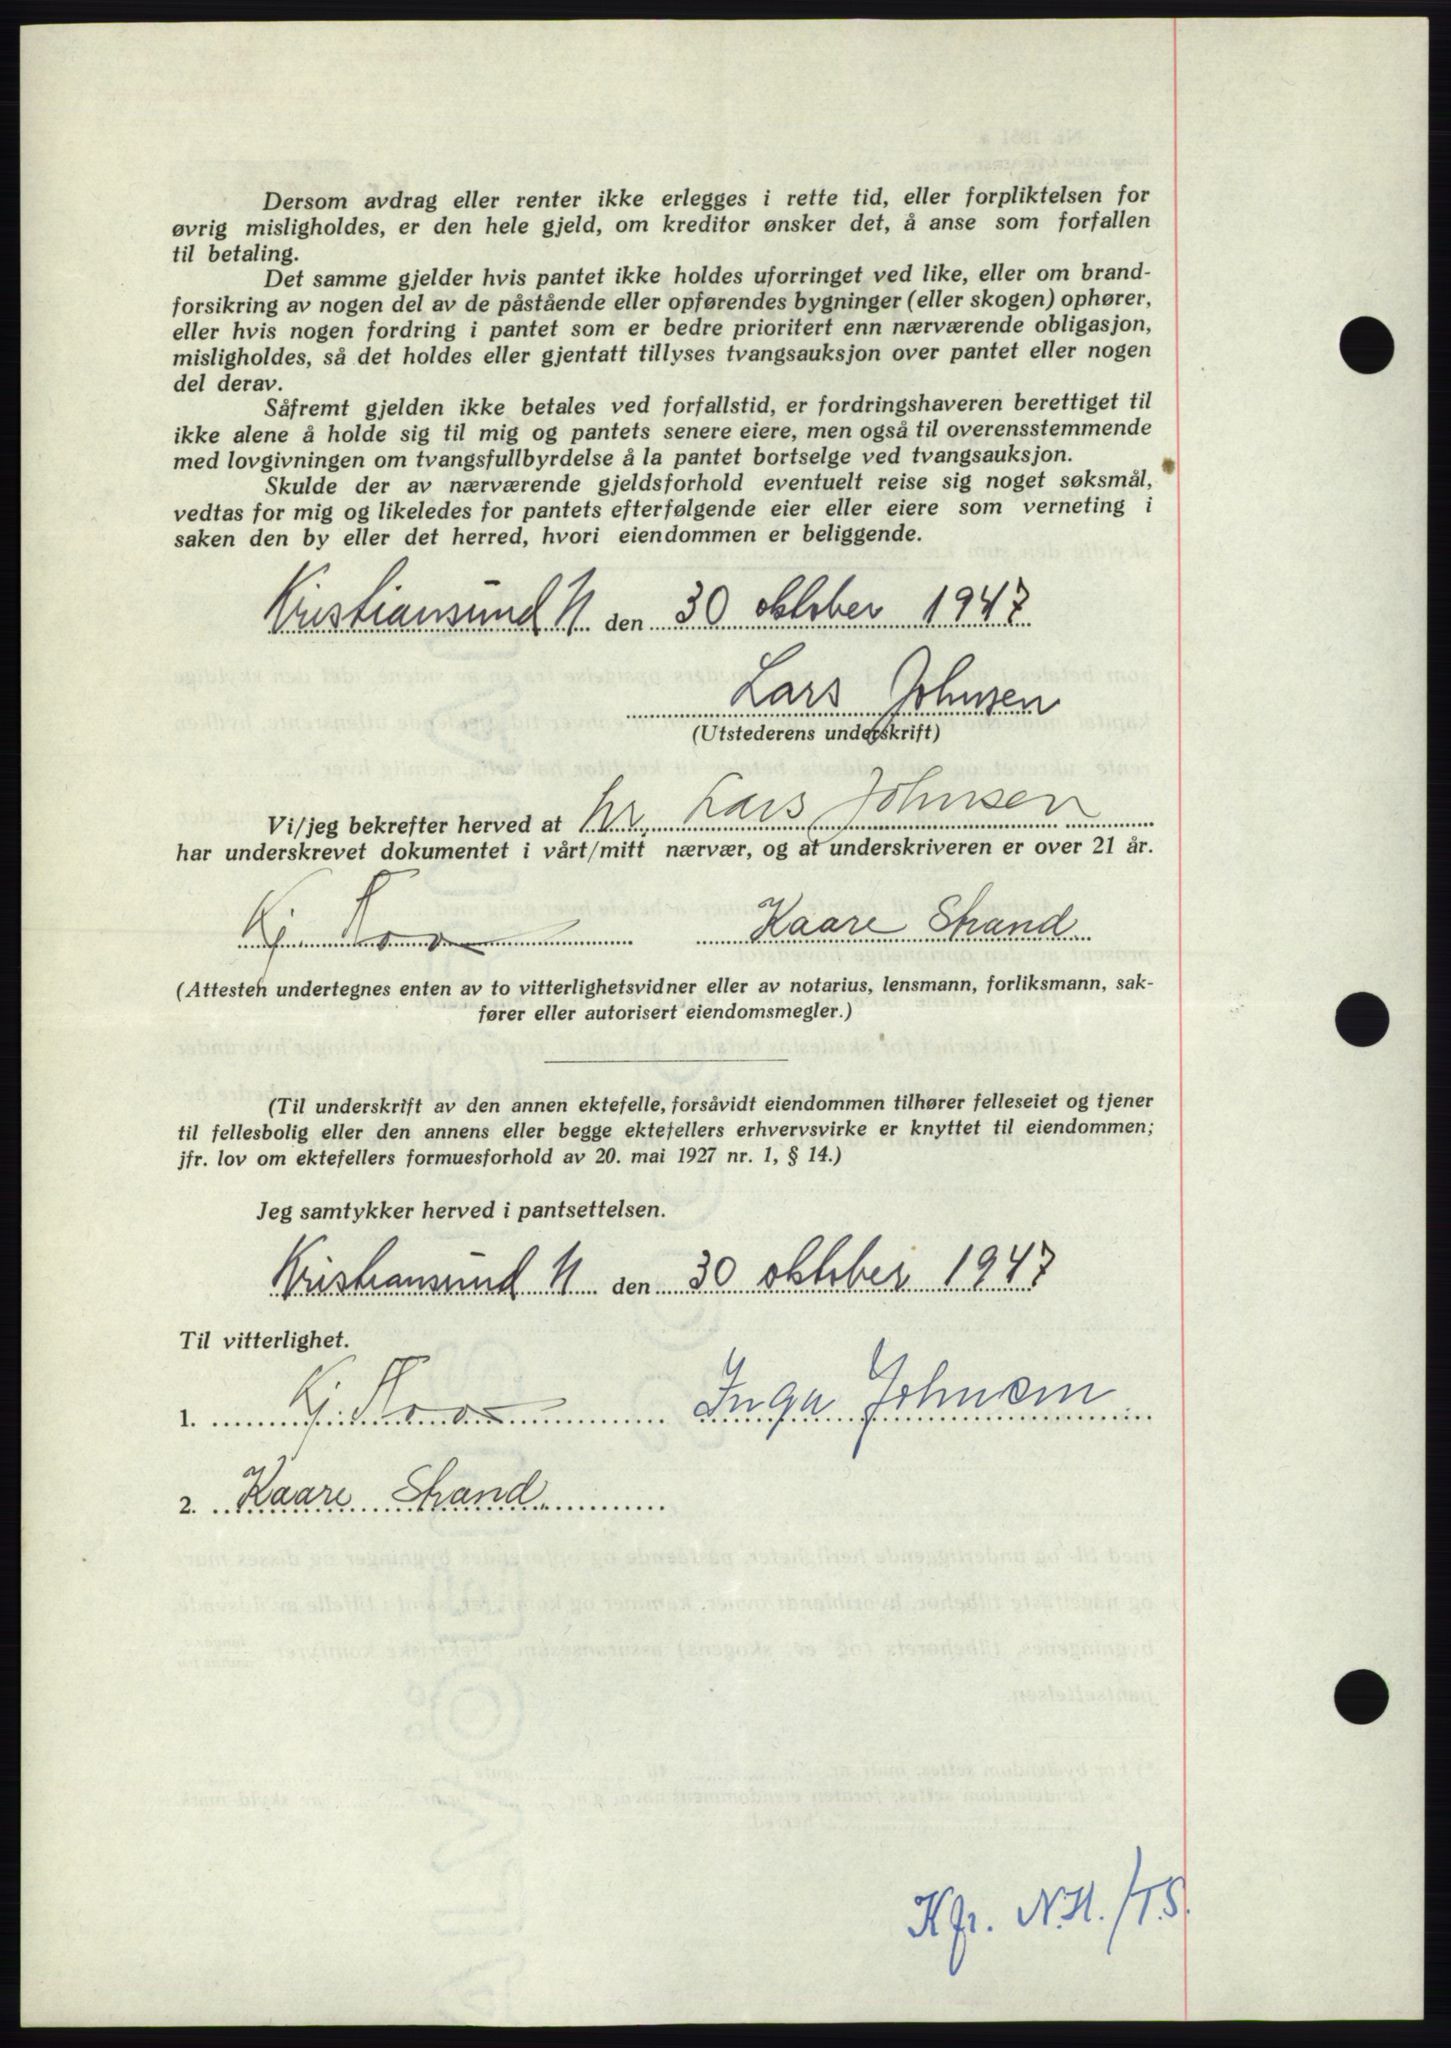 Dersom avdrag eller renter ikke erlegges i rette tid, eller forpliktelsen for
øvrig misligholdes, er den hele gjeld, om kreditor ønsker det, å anse som forfallen
til betaling.
Det samme gjelder hvis pantet ikke holdes uforringet ved like, eller om brand-
forsikring av nogen del av de påstående eller opførendes bygninger (eller skogen) ophører,
eller hvis nogen fordring i pantet som er bedre prioritert enn nærværende obligasjon,
misligholdes, så det holdes eller gjentatt tillyses tvangsauksjon over pantet eller nogen
del derav.
Såfremt gjelden ikke betales ved forfallstid, er fordringshaveren berettiget til
ikke alene å holde sig til mig og pantets senere eiere, men også til overensstemmende
med lovgivningen om tvangsfullbyrdelse å la pantet bortselge ved tvangsauksjon.
Skulde der av nærværende gjeldsforhold eventuelt reise sig noget søksmål,
vedtas for mig og likeledes for pantets efterfølgende eier eller eiere som verneting i
saken den by eller det herred, hvori eiendommen er beliggende.
Kristiansund N den 30 oktober 1947
Lars Johnsen
(Utstederens underskrift)
Vi/jeg bekrefter herved at hr. Lars Johnsen
har underskrevet dokumentet i vårt/mitt nærvær, og at underskriveren er over 21 år.
Kaare Strand
(Attesten undertegnes enten av to vitterlighetsvidner eller av notarius, lensmann, forliksmann, sak-
fører eller autorisert eiendomsmegler.)
(Til underskrift av den annen ektefelle, forsåvidt eiendommen tilhører felleseiet og tjener
til fellesbolig eller den annens eller begge ektefellers erhvervsvirke er knyttet til eiendommen;
jfr. lov om ektefellers formuesforhold av 20. mai 1927 nr. 1, § 14.)
Jeg samtykker herved i pantsettelsen.
Kristiansund N den 30 oktober 1947
Til vitterlighet.
1. Inga Johnsen
2. Kaare Strand
Kfr. N.H./T.S.